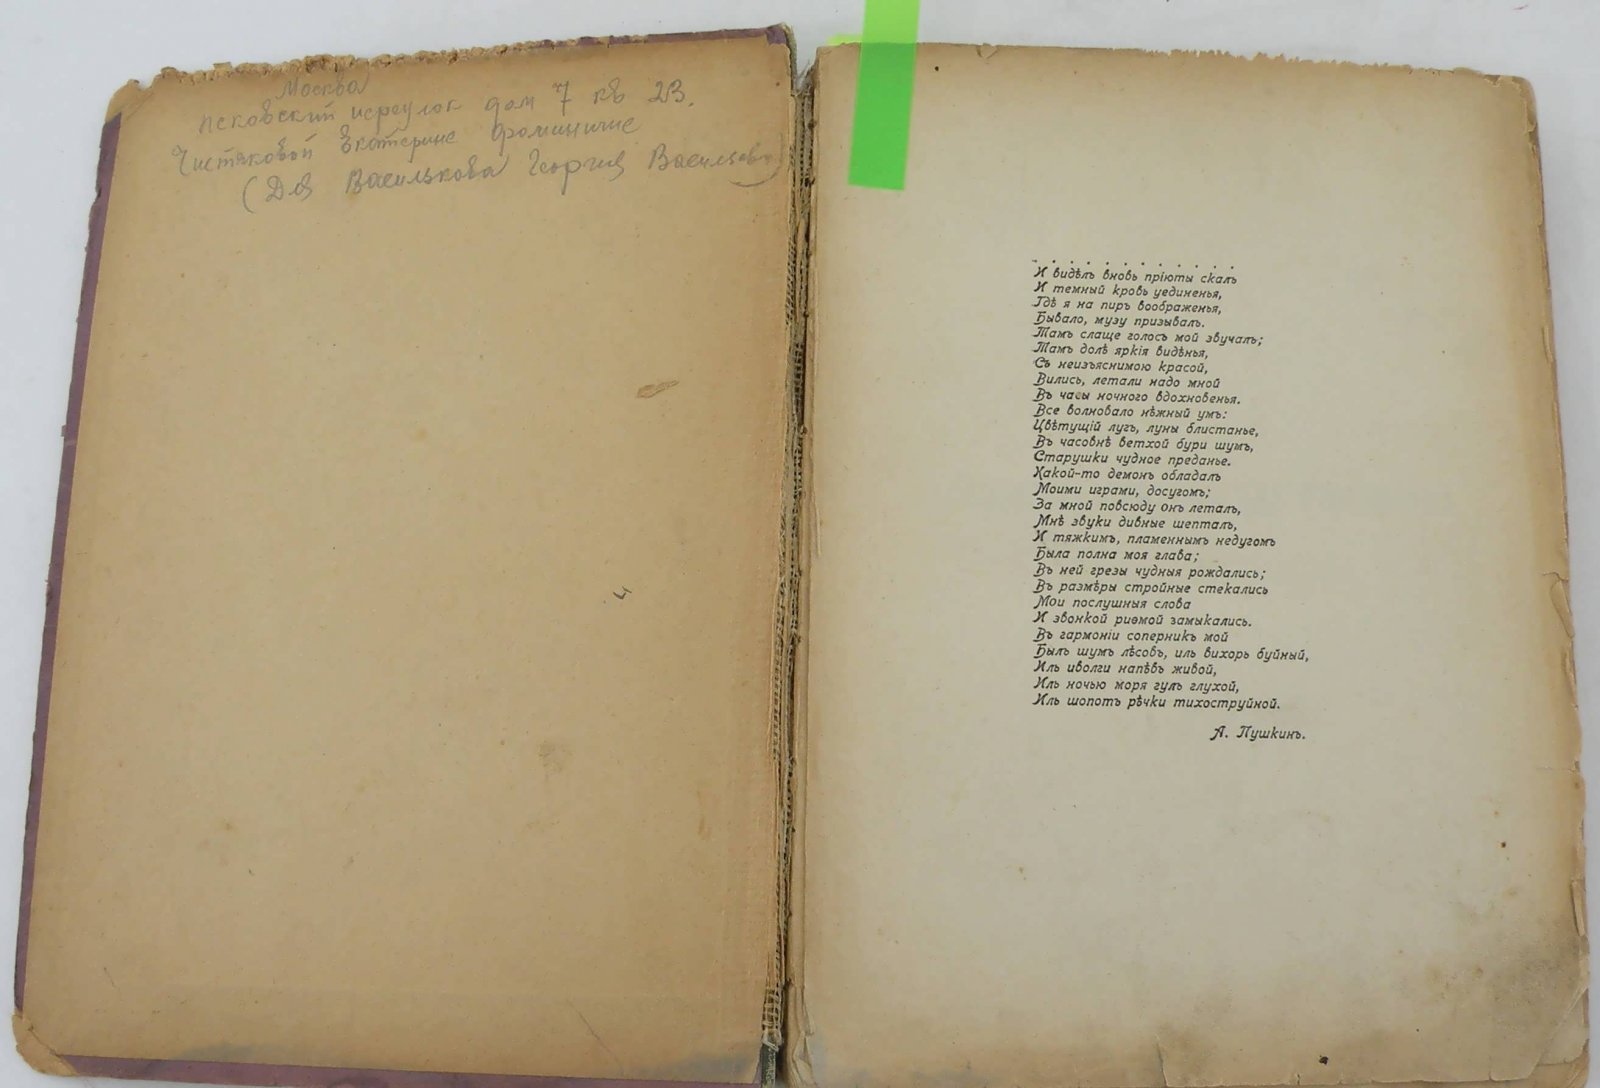 Москва
псковский переулок дом 7 кв 23.
Чистяковой Екатерине Фоминичне
(Для Василькова Георгия Васильев)
. . . . . . . . . . . .
И видѣлъ вновь пріюты скалъ
И темный кровъ уединенья,
Гдѣ я на пиръ воображенья,
Бывало, музу призывалъ.
Тамъ слаще голосъ мой звучалъ;
Тамъ долѣ яркія видѣнья,
Съ неизъяснимою красой,
Вились, летали надо мной
Въ часы ночного вдохновенья.
Все волновало нѣжный умъ:
Цвѣтущій лугъ, луны блистанье,
Въ часовнѣ ветхой бури шумъ,
Старушки чудное преданье.
Какой-то демонъ обладалъ
Моими играми, досугомъ;
За мной повсюду онъ леталъ,
Мнѣ звуки дивные шепталъ,
И тяжкимъ, пламеннымъ недугомъ
Была полна моя глава;
Въ ней грезы чудныя рождались;
Въ размѣры стройные стекались
Мои послушныя слова
И звонкой риѳмой замыкались.
Въ гармоніи соперникъ мой
Былъ шумъ лѣсовъ, иль вихорь буйный,
Иль иволги напѣвъ живой,
Иль ночью моря гулъ глухой,
Иль шопотъ рѣчки тихоструйной.
А. Пушкинъ.